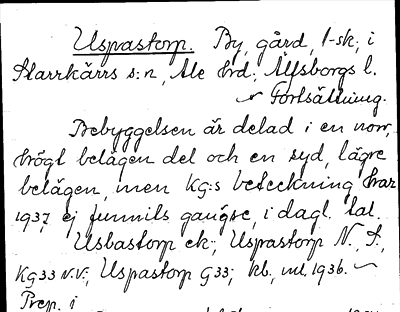 Uspastorp. By, gård, 1-sk, i
Starrkärrs s:n, Ale hd, Älfsborgs l.
Fortsättning.
Bebyggelsen är delad i en norr,
högt belägen del och en syd, lägre
belägen, men KG:s beteckning har
1937 ej funnits gängse, i dagl. tal.
Usbastorp ek; Uspastorp N., S.,
KG33 N.V.; Uspastorp G33; kb, ml. 1936.
Prep. i